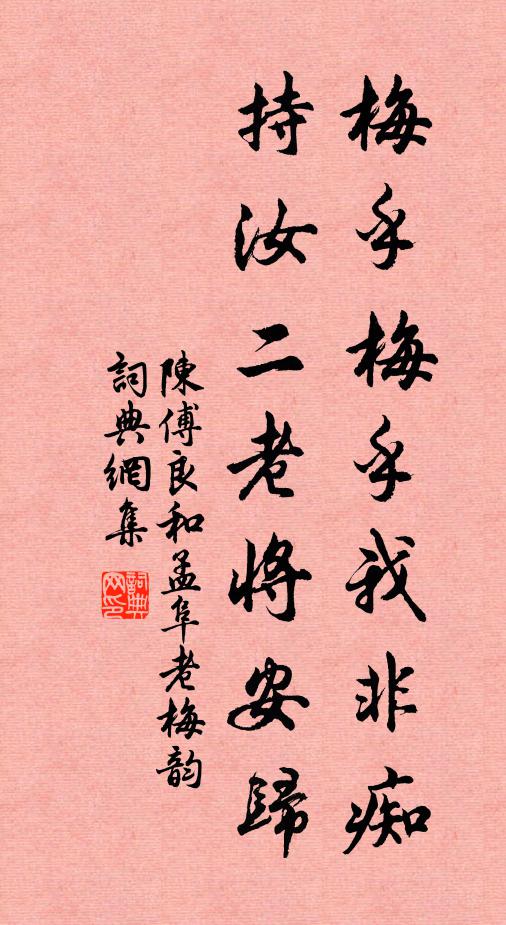 梅乎梅乎我非痴
持汝二老將安歸
陳傅良和孟阜老梅韵
詞典網集
詞典网印